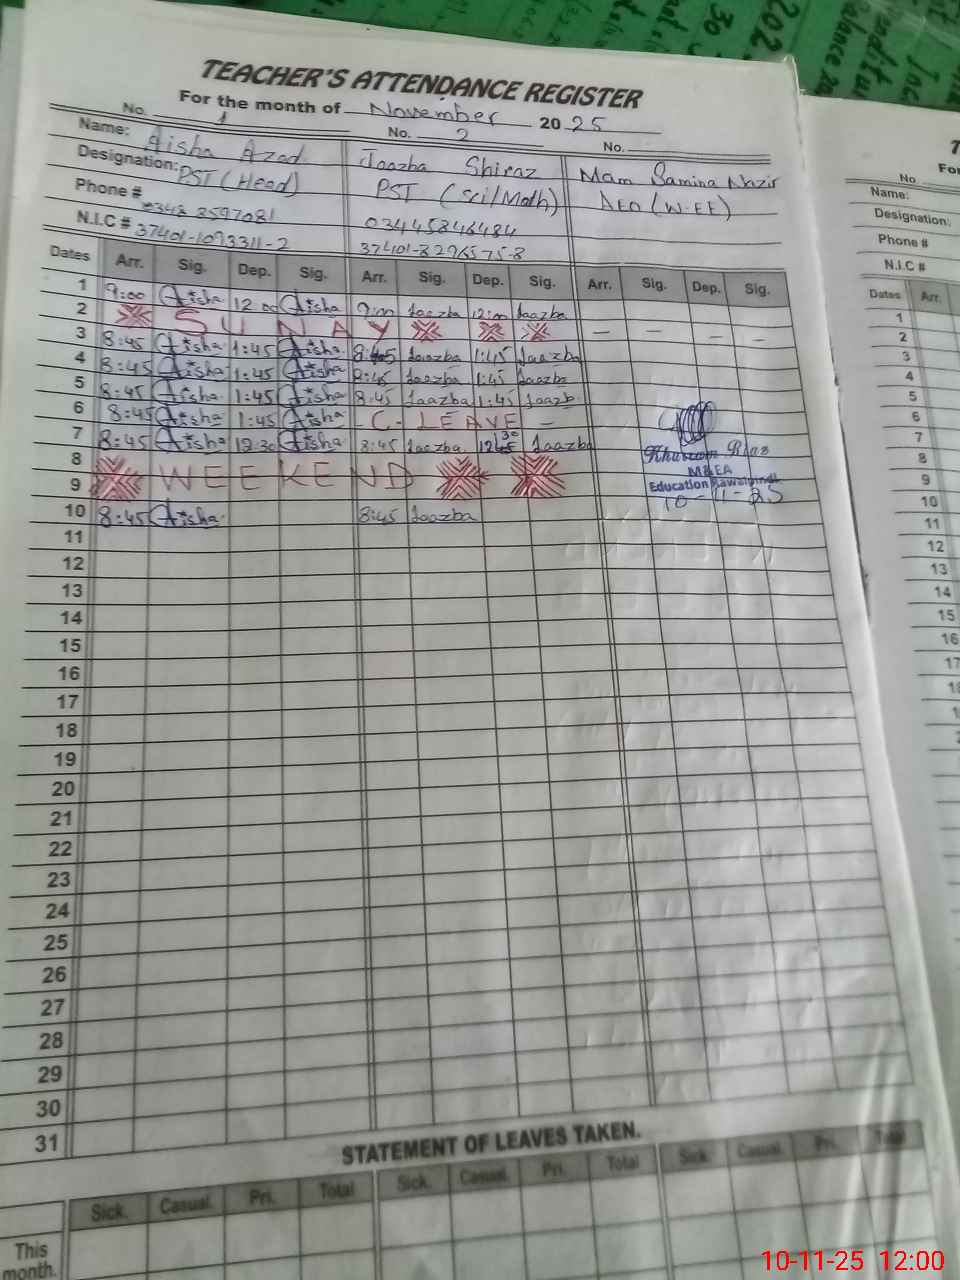 TEACHER'S ATTENDANCE REGISTER
For the month of November 2025
No. 1 No. 2 No.
Name: Aisha Azad Jaazba Shiraz Mam Samina Nazir
Designation: PST (Head) PST (Sci/Math) AEO (W-EE)
Phone # 0348 2597081 03445846484
N.I.C # 37401-1093311-2 37401-8296575-8
Dates Arr. Sig. Dep. Sig. Arr. Sig. Dep. Sig. Arr. Sig. Dep. Sig.
1 9:00 Aisha 12:00 Aisha 9:00 Jaazba 12:00 Jaazba
2 SUNAY — — — —
3 8:45 Aisha 1:45 Aisha 8:45 Jaazba 1:45 Jaazba
4 8:45 Aisha 1:45 Aisha 8:45 Jaazba 1:45 Jaazba
5 8:45 Aisha 1:45 Aisha 8:45 Jaazba 1:45 Jaazb
6 8:45 Aisha 1:45 Aisha - C- LEAVE -
7 8:45 Aisha 12:30 Aisha 8:45 Jaazba 12:30 Jaazba
Khurram Riaz
8 WEEKEND
M&EA
9
Education Rawalpindi
10-11-25
10 8:45 Aisha 8:45 Jaazba
11
12
13
14
15
16
17
18
19
20
21
22
23
24
25
26
27
28
29
30
31
STATEMENT OF LEAVES TAKEN.
Sick. Casual. Pri. Total Sick. Casual. Pri. Total Sick. Casual. Pri. Total
This
month.
No.
Name:
Designation:
Phone #
N.I.C #
Dates Arr.
1
2
3
4
5
6
7
8
9
10
11
12
13
14
15
16
17
10-11-25 12:00